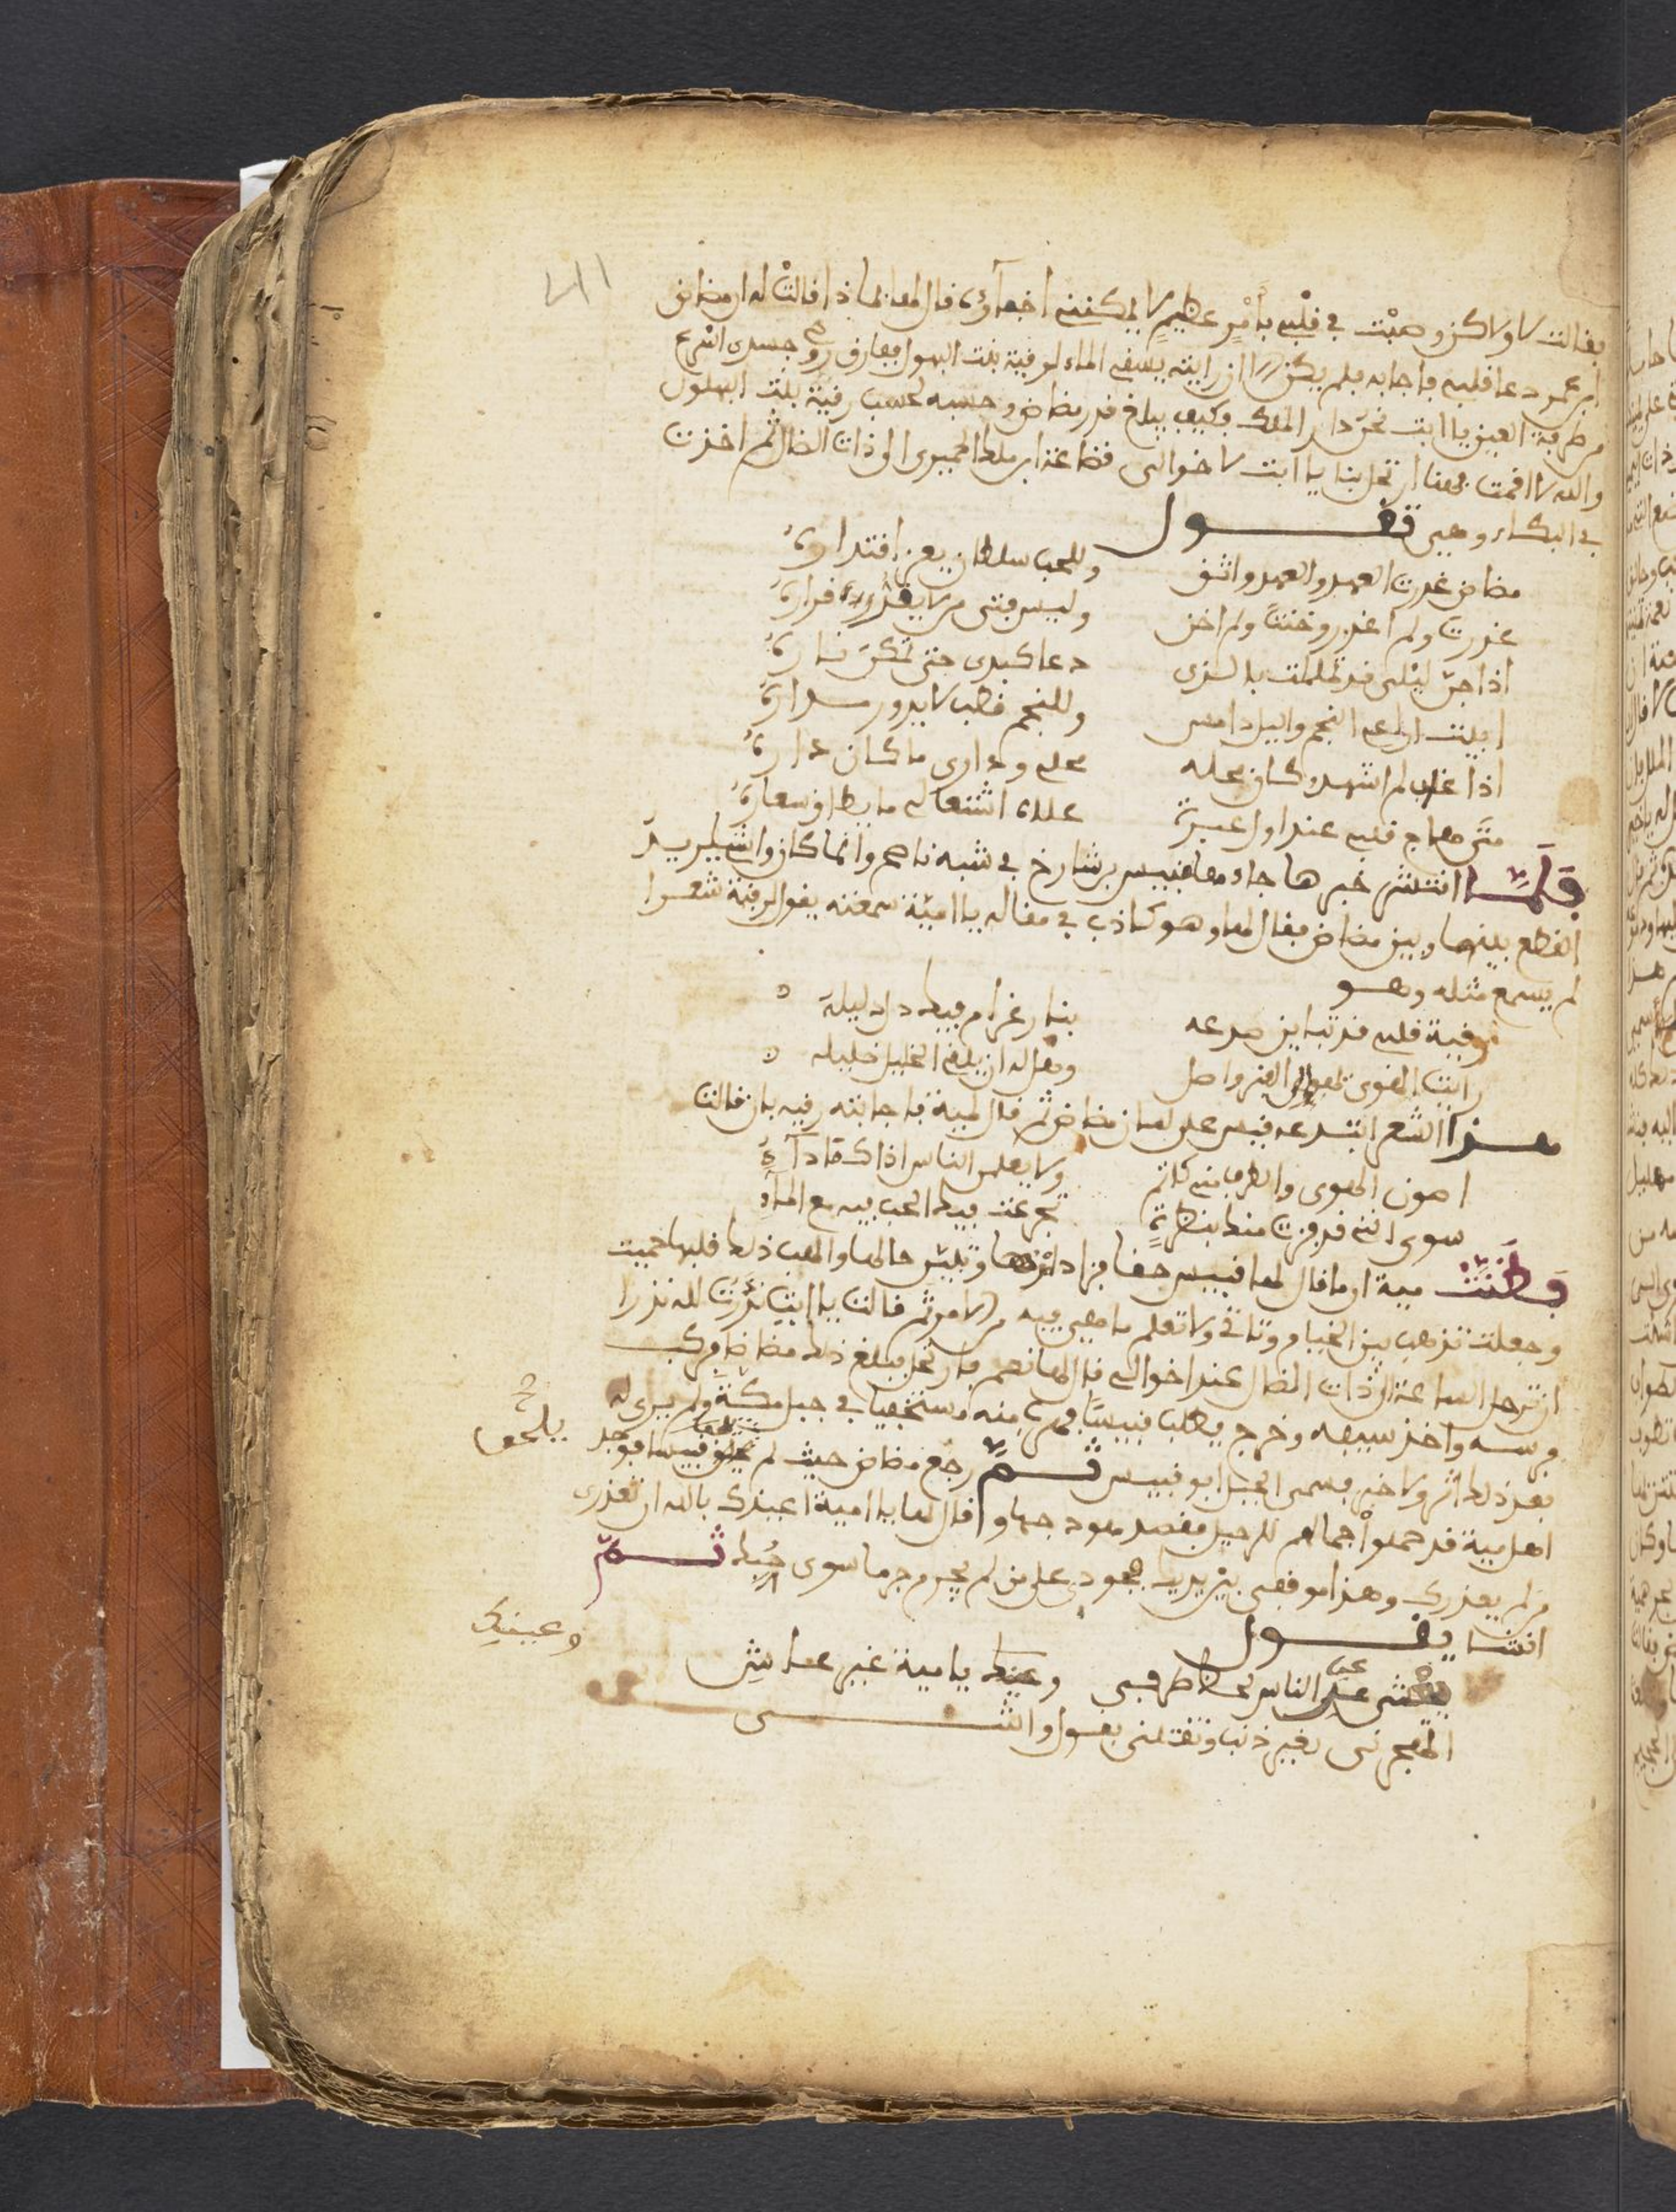 فقالت لا ولاكن وهبْت في قلبي بأمرٍ عظيمٍ لا يمكنني اخفآؤه قال لها بماذا قالتْ له ان مضاض
ابن عمي دعا قلبي فاجابه فلم يكن الا ان رايته يسقي الماء لرقية بنت البهلول ففارق روحي جسدي اسْرع
من طرفة العين يا ابت نحن دار الملك وكيف يبلغ قدر مضاض وحسبه لحسب رقية بنت البهلول
والله لا اقمت معنا ان تحل بنا يا ابت لاخوالي قضاعة ابن ملك الحميري او ذات الضال ثم اخذت
في البكاء وهي تقول
مضاض غدرت العهد والعهد واثق وللحب سلطان يعز اقتداره
غدرت ولم اغدر وخنتَ ولم اخن وليس فتى من لا يقر قراره
اذا جنّ ليْلي قد تململت بالذي دعا كبدي حتى تمكن ناره
ابيت اراعي النجم والليل دامس وللنجم قطب لا يدور مداره
اذا غاب لم اشهد وكان محله محلي وداري ما كان داره
متى هاج قلبي عند اول عبرة علاه اشتعال ما يطاق سعاره
فلمّا انتشر خبرها جاء معا قبيس بن شارخ في شبه ناصح وانما كان واشيا يريد
القطع بينها وبين مضاض فقال لها وهو كاذب في مقاله يا امية سمعته يقول لرقية شعرا
لم يسمع مثله وهو
رقية قلبي قد تباين صدعه بنار غرام فيك دل دليله
رايت الهوى يهوى الهز واصل وهل له ان يلقى الخليل خليله
هذا الشعر ابتدعه قبيس على لسان مضاض ثم قال لمية فاجابته رقيه بان قالت
اصون الهوى والطرف مني كاتم ولا يعلمن الناس اذا كما دآئي
سوى انني قد فزت منك بنظرةٍ تجرعت فيك الحب فيه مع المآء
فظنّت مية ان ما قال لها قبيس حقا فزاد امرها وتبين حالها والهب ذلك قلبها حميت
وجعلت تذهب بين الخيام وتاتي ولا تعلم ما هي فيه من الامر ثم قالت يا ابت نَذَرتُ لله نذرا
ان ترحل الساعة الى ذات الضال عند اخوالي قال لها نعم فارتحل فبلغ ذلك مضاضا فركب
فرسه واخذ سيفه وخرج يطلب قبيسًا فهرب منه مستخفيا في جبل مكةَ ولم يرى له
بعد ذلك اثر ولا خبر فسمي الجبل ابو قبيس ثمّ رجع مضاض حيث لم يلحق قبيسا فوجد
يلحق صح
اهل مية قد حملوا جمالهم للرحيل فقصد هودجها وقال لها يا امية اعيذك بالله ان تغدري
من لم يغدرك وهذا موقفي بين يديك فجودي على من لم يجرم جرما سوى حُبك ثمّ
انشا يقول
يغشى عن الناس لحاظ طرفي وعينك يا مية غير عاش
وعينيك
اتهجرني بغير ذنب وتقتلني بقول واشـــي